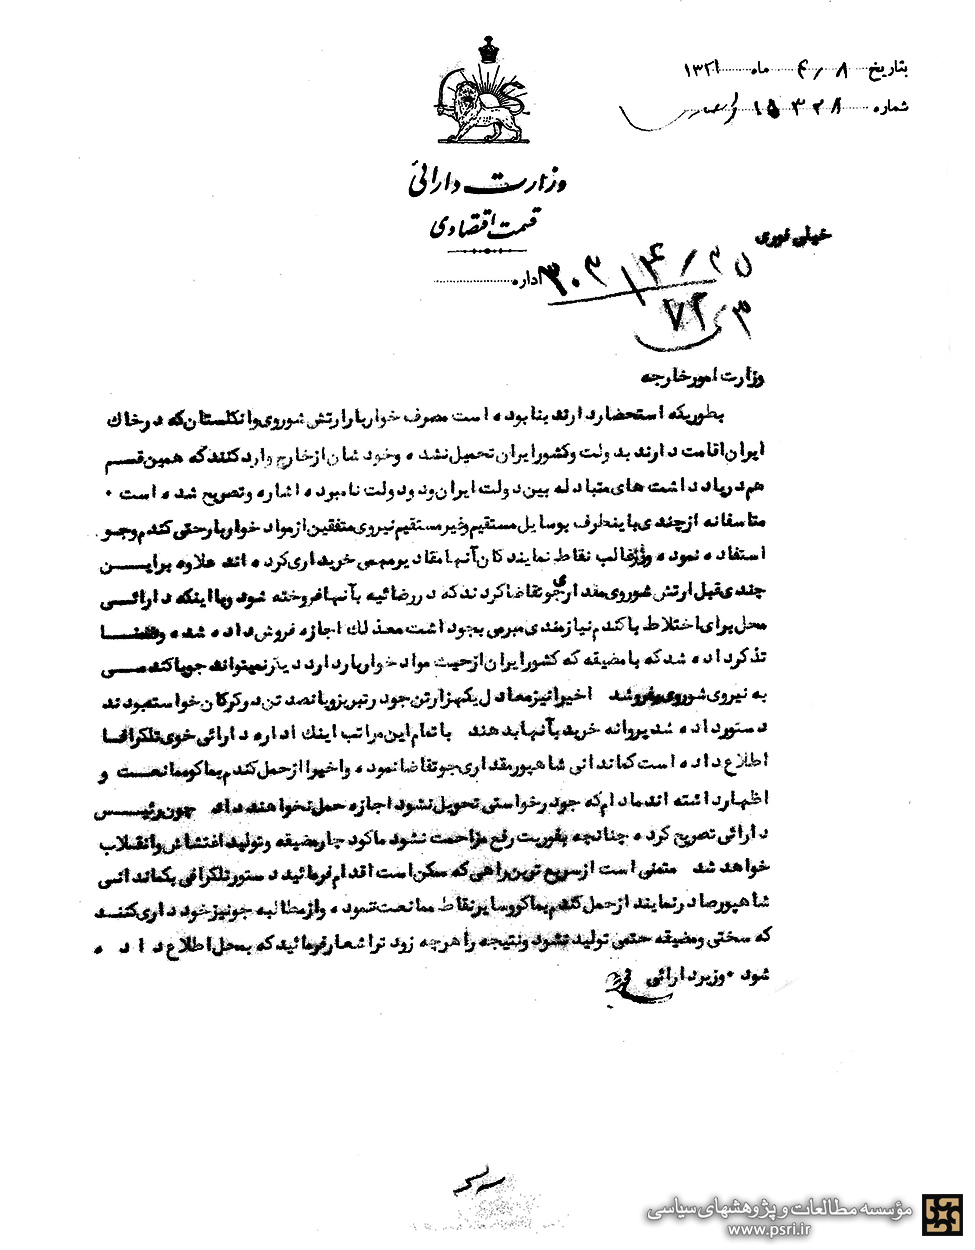 بتاریخ ۸ / ۴ ماه ۱۳۲۱
شماره ۱۵۳۲۸
وزارت دارائی
قسمت اقتصادی
اداره
خیلی فوری
وزارت امور خارجه
بطوریکه استحضار دارند بنا بوده است مصرف خواربار ارتش شوروی و انگلستان که در خاک
ایران اقامت دارند بدولت و کشور ایران تحمیل نشده و خودشان از خارج وارد کنند که همین قسم
هم در یادداشت های متبادله بین دولت ایران و دو دولت نامبوده اشاره و تصریح شده است ۰
متاسفانه از چندی باینطرف بوسایل مستقیم و غیر مستقیم نیروی متفقین از مواد خواربار حتی گندم و جو
استفاده نموده و در غالب نقاط نمایندگان آنها مقادیر مهمی خریداری کرده اند علاوه بر این
چندی قبل ارتش شوروی مقداری جو تقاضا کردند که در رضائیه بآنها فروخته شود و با اینکه دارائی
محل برای اختلاط با گندم نیازمندی مبرمی بجو داشت معذلک اجازه فروش داده شده و ضمنا
تذکر داده شد که با مضیقه که کشور ایران از حیث مواد خواربار دارد دیگر نمیتواند جو یا گندمی
به نیروی شوروی بفروشد اخیرا نیز معادل یکهزار تن جو در تبریز و پانصد تن در گرگان خواسته بودند
دستور داده شد پروانه خرید بآنها بدهند با تمام این مراتب اینک اداره دارائی خوی تلگرافا
اطلاع داده است کماندانی شاهپور مقداری جو تقاضا نموده و اخیرا از حمل گندم بماکو ممانعت و
اظهار داشته اند مادام که جو درخواستی تحویل نشود اجازه حمل نخواهند داد چون رئیس
دارائی تصریح کرده چنانچه بفوریت رفع مزاحمت نشود ماکو دچار مضیقه و تولید اغتشاش و انقلاب
خواهد شد متمنی است از سریع ترین راهی که ممکن است اقدام فرمائید دستور تلگرافی بکماندانی
شاهپور صادر نمایند از حمل گندم بماکو و سایر نقاط ممانعت ننموده و از مطالبه جو نیز خودداری کنند
که سختی و مضیقه حتمی تولید نشود و نتیجه را هرچه زودتر اشعار فرمائید که بمحل اطلاع داده
شود ۰ وزیر دارائی
مؤسسه مطالعات و پژوهشهای سیاسی
www.psri.ir